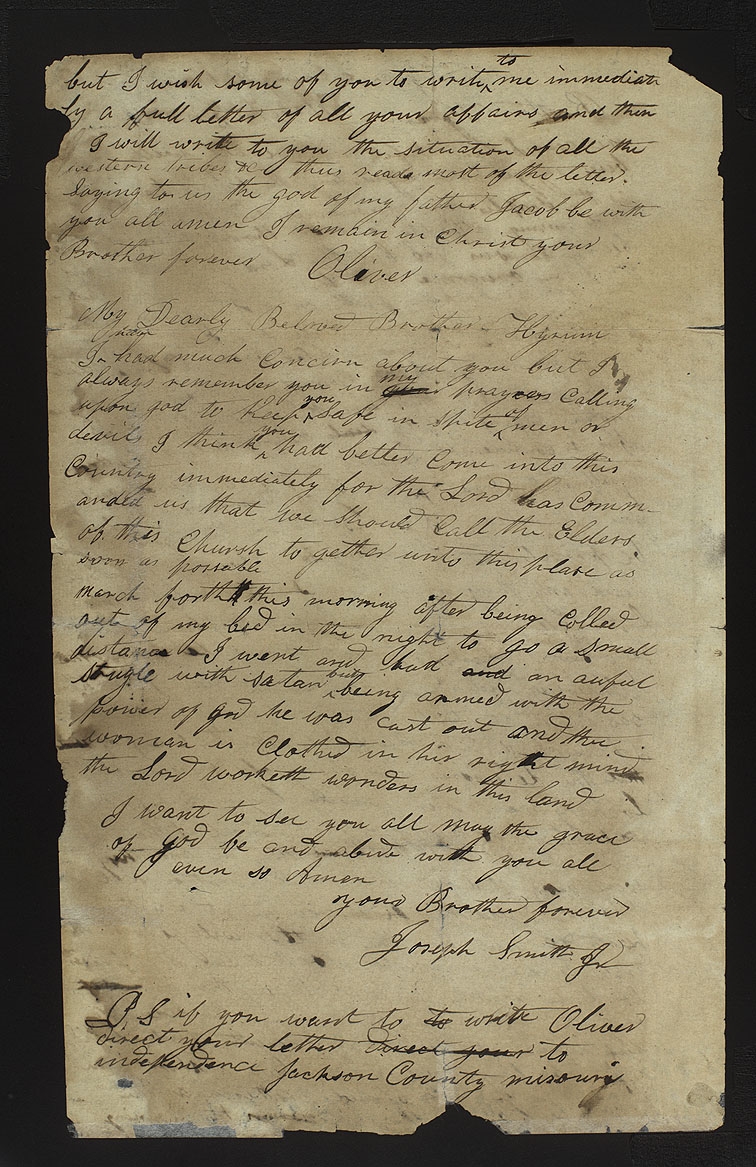 but I wish some of you to write to me immediate
ly a full letter of all your affairs and then
I will write to you the situation of all the
western tribes &c thus reads most of the letter.
Saying to us the god of my father Jacob be with
you all amen I remain in Christ your
Brother forever Oliver
My Dearly Beloved Brother Hyrum
I have had much Concirn about you but I
always remember you in my prayers Calling
upon god to keep you Safe in spite of men or
devils I think you had better Come into this
Country immediately for the Lord has Comm-
anded us that we should Call the Elders
of this Church to gether unto this plase as
soon as possable
march forth this morning after being Colled
out of my bed in the night to go a small
distance I went and had and an awful
strugle with satan but being armed with the
power of god he was cast out and the
woman is Clothed in hir right mind
the Lord worketh wonders in this land
I want to see you all may the grace
of God be and abide with you all
even so Amen
your Brother forever
Joseph Smith Jr
P.S if you want to to write Oliver
direct your letter direct your to
independence Jackson County misouri